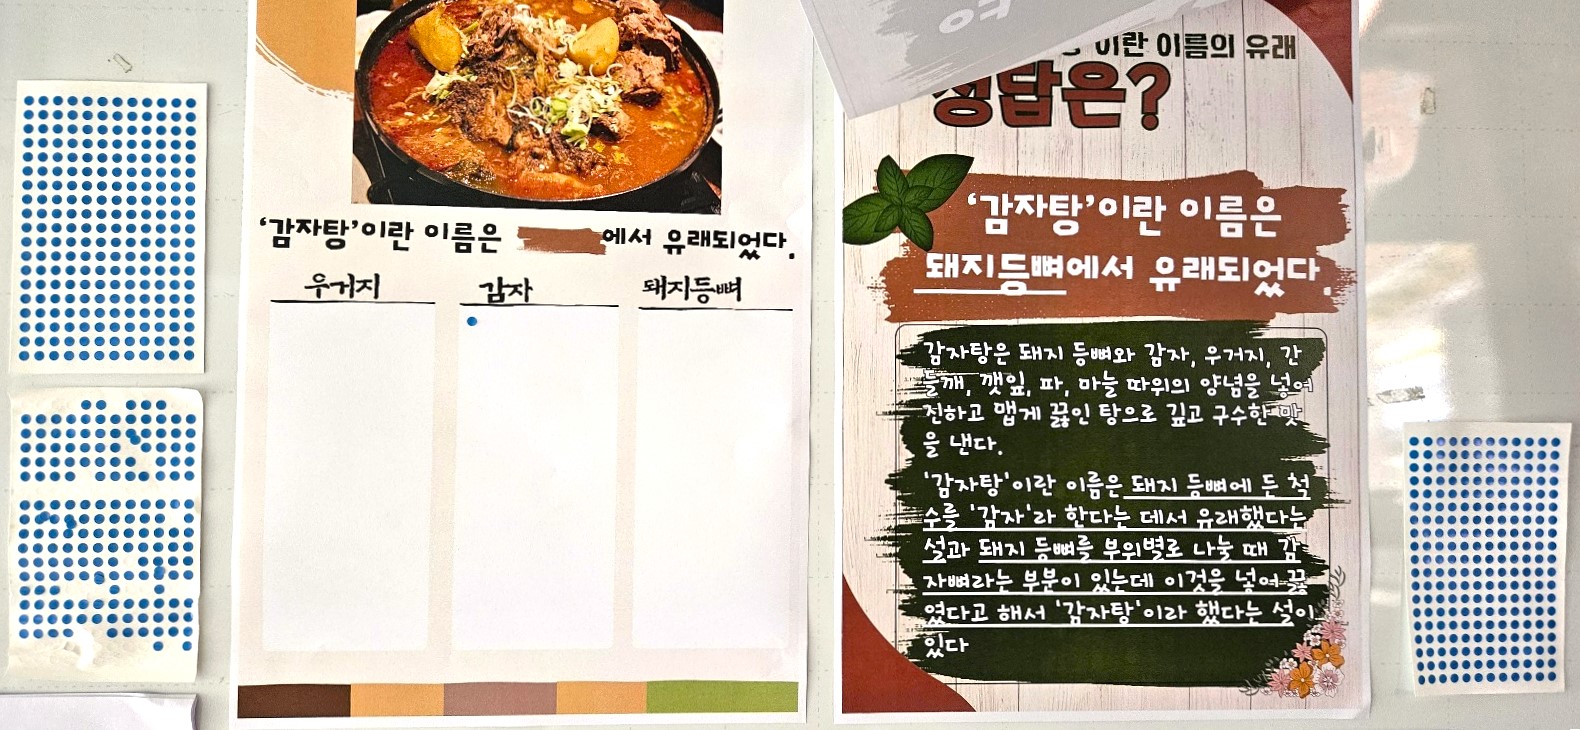 '감자탕'이란 이름은 에서 유래되었다.
우거지
감자
돼지등뼈
여
이란 이름의 유래
정답은?
'감자탕'이란 이름은
돼지등뼈에서 유래되었다.
감자탕은 돼지 등뼈와 감자, 우거지, 간
들깨, 깻잎, 파, 마늘 따위의 양념을 넣어
진하고 맵게 끓인 탕으로 깊고 구수한 맛
을 낸다.
'감자탕'이란 이름은 돼지 등뼈에 든 척
수를 '감자'라 한다는 데서 유래했다는
설과 돼지 등뼈를 부위별로 나눌 때 감
자뼈라는 부분이 있는데 이것을 넣어 끓
였다고 해서 '감자탕'이라 했다는 설이
있다